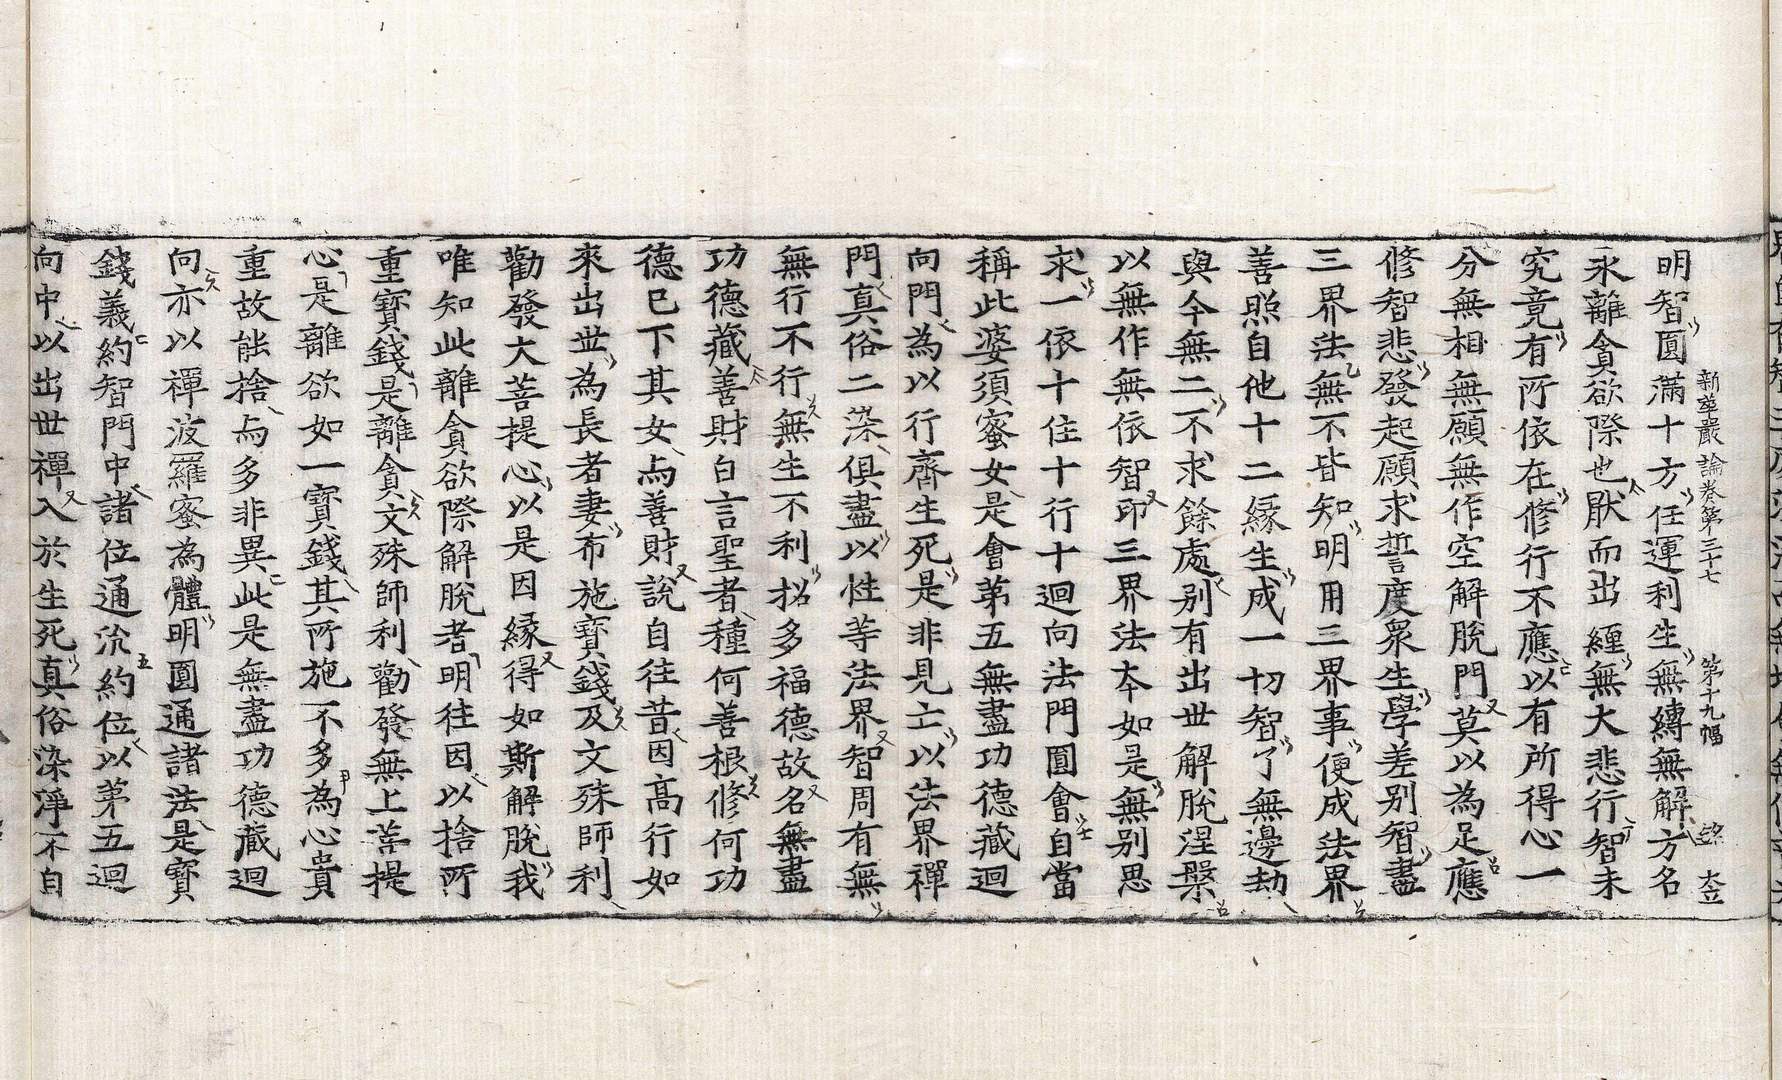 新華嚴論卷第三十七 第十九幅 大立
明智圎滿十方任運利生無縛無解方名
永離貪欲際也猒而出經無大悲行智未
究竟有所依在修行不應以有所得心一
分無相無願無作空解脫門莫以為足應
修智悲發起願求誓度衆生學差别智盡
三界法無不皆知明用三界事便成法界
善照自他十二緣生成一切智了無邊劫
與今無二不求餘處别有出世解脫涅槃
以無作無依智印三界法夲如是無别思
求一依十住十行十迴向法門圎會自當
稱此婆須蜜女是會第五無盡功德藏迴
向門為以行齊生死是非見亡以法界禪
門真俗二染俱盡以性等法界智周有無
無行不行無生不利招多福德故名無盡
功德藏善財白言聖者種何善根修何功
德已下其女与善財說自往昔因髙行如
來出世為長者妻布施寳錢及文殊師利
勸發大菩提心以是因緣得如斯解脫我
唯知此離貪欲際解脫者明往因以捨所
重寳錢是離貪文殊師利勸發無上菩提
心是離欲如一寳錢其所施不多為心貴
重故能捨与多非異此是無盡功德藏迴
向亦以禪波羅蜜為體明圎通諸法是寳
錢義約智門中諸位通㳂約位以第五迴
向中以出世禪入於生死真俗染淨不自